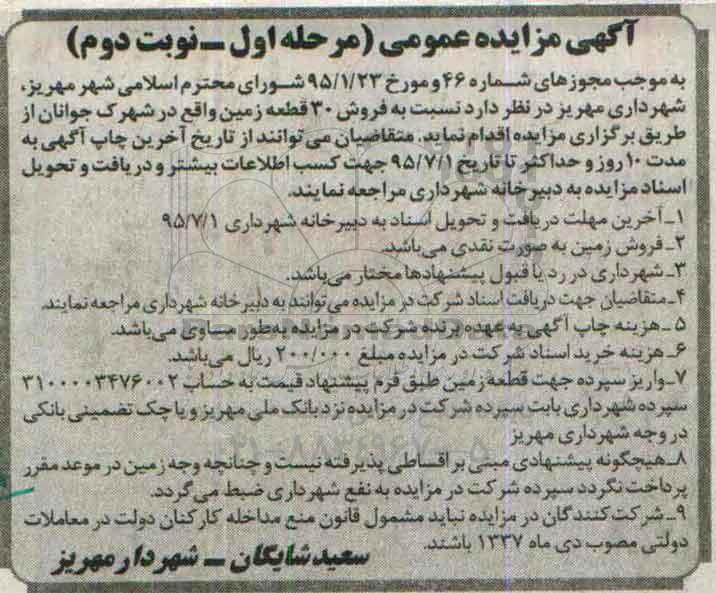 آگهی مزایده عمومی (مرحله اول ـ نوبت دوم)
به موجب مجوزهای شماره ۴۶ و مورخ ۹۵/۱/۲۳ شورای محترم اسلامی شهر مهریز،
شهرداری مهریز در نظر دارد نسبت به فروش ۳۰ قطعه زمین واقع در شهرک جوانان از
طریق برگزاری مزایده اقدام نماید. متقاضیان می توانند از تاریخ آخرین چاپ آگهی به
مدت ۱۰ روز و حداکثر تا تاریخ ۹۵/۷/۱ جهت کسب اطلاعات بیشتر و دریافت و تحویل
اسناد مزایده به دبیرخانه شهرداری مراجعه نمایند.
۱ـ آخرین مهلت دریافت و تحویل اسناد به دبیرخانه شهرداری ۹۵/۷/۱
۲ـ فروش زمین به صورت نقدی می‌باشد.
۳ـ شهرداری در رد یا قبول پیشنهادها مختار می‌باشد.
۴ـ متقاضیان جهت دریافت اسناد شرکت در مزایده می‌توانند به دبیرخانه شهرداری مراجعه نمایند.
۵ـ هزینه چاپ آگهی به عهده برنده شرکت در مزایده به‌طور مساوی می‌باشد.
۶ـ هزینه خرید اسناد شرکت در مزایده مبلغ ۲۰۰/۰۰۰ ریال می‌باشد.
۷ـ واریز سپرده جهت قطعه زمین طبق فرم پیشنهاد قیمت به حساب ۳۱۰۰۰۰۳۴۷۶۰۰۲
سپرده شهرداری بابت سپرده شرکت در مزایده نزد بانک ملی مهریز و یا چک تضمینی بانکی
در وجه شهرداری مهریز
۸ـ هیچگونه پیشنهادی مبنی بر اقساطی پذیرفته نیست و چنانچه وجه زمین در موعد مقرر
پرداخت نگردد سپرده شرکت در مزایده به نفع شهرداری ضبط می‌گردد.
۹ـ شرکت کنندگان در مزایده نباید مشمول قانون منع مداخله کارکنان دولت در معاملات
دولتی مصوب دی ماه ۱۳۳۷ باشند.
سعید شایگان ـ شهردار مهریز